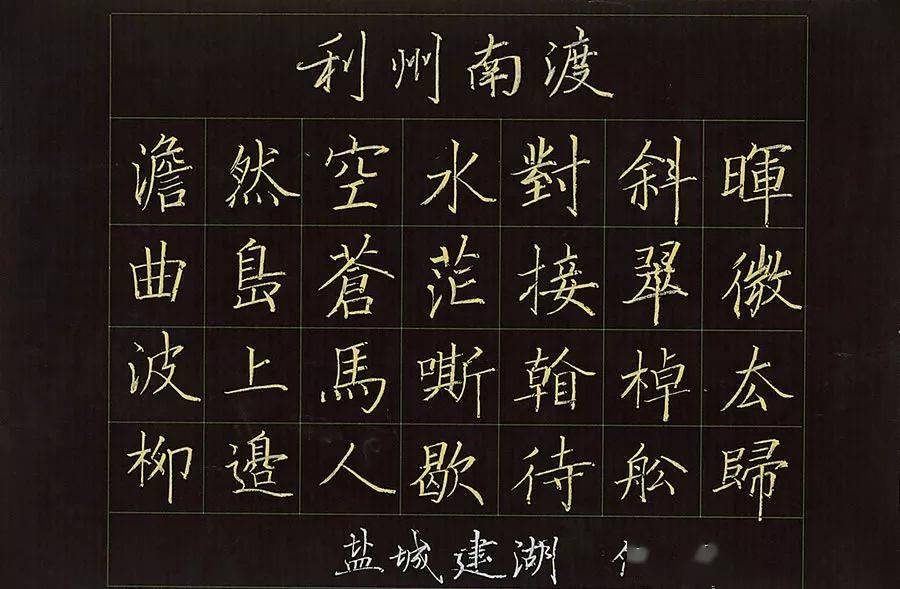 利州南渡
澹然空水對斜暉
曲島蒼茫接翠微
波上馬嘶看棹厺
柳邉人歇待舩歸
盐城建湖